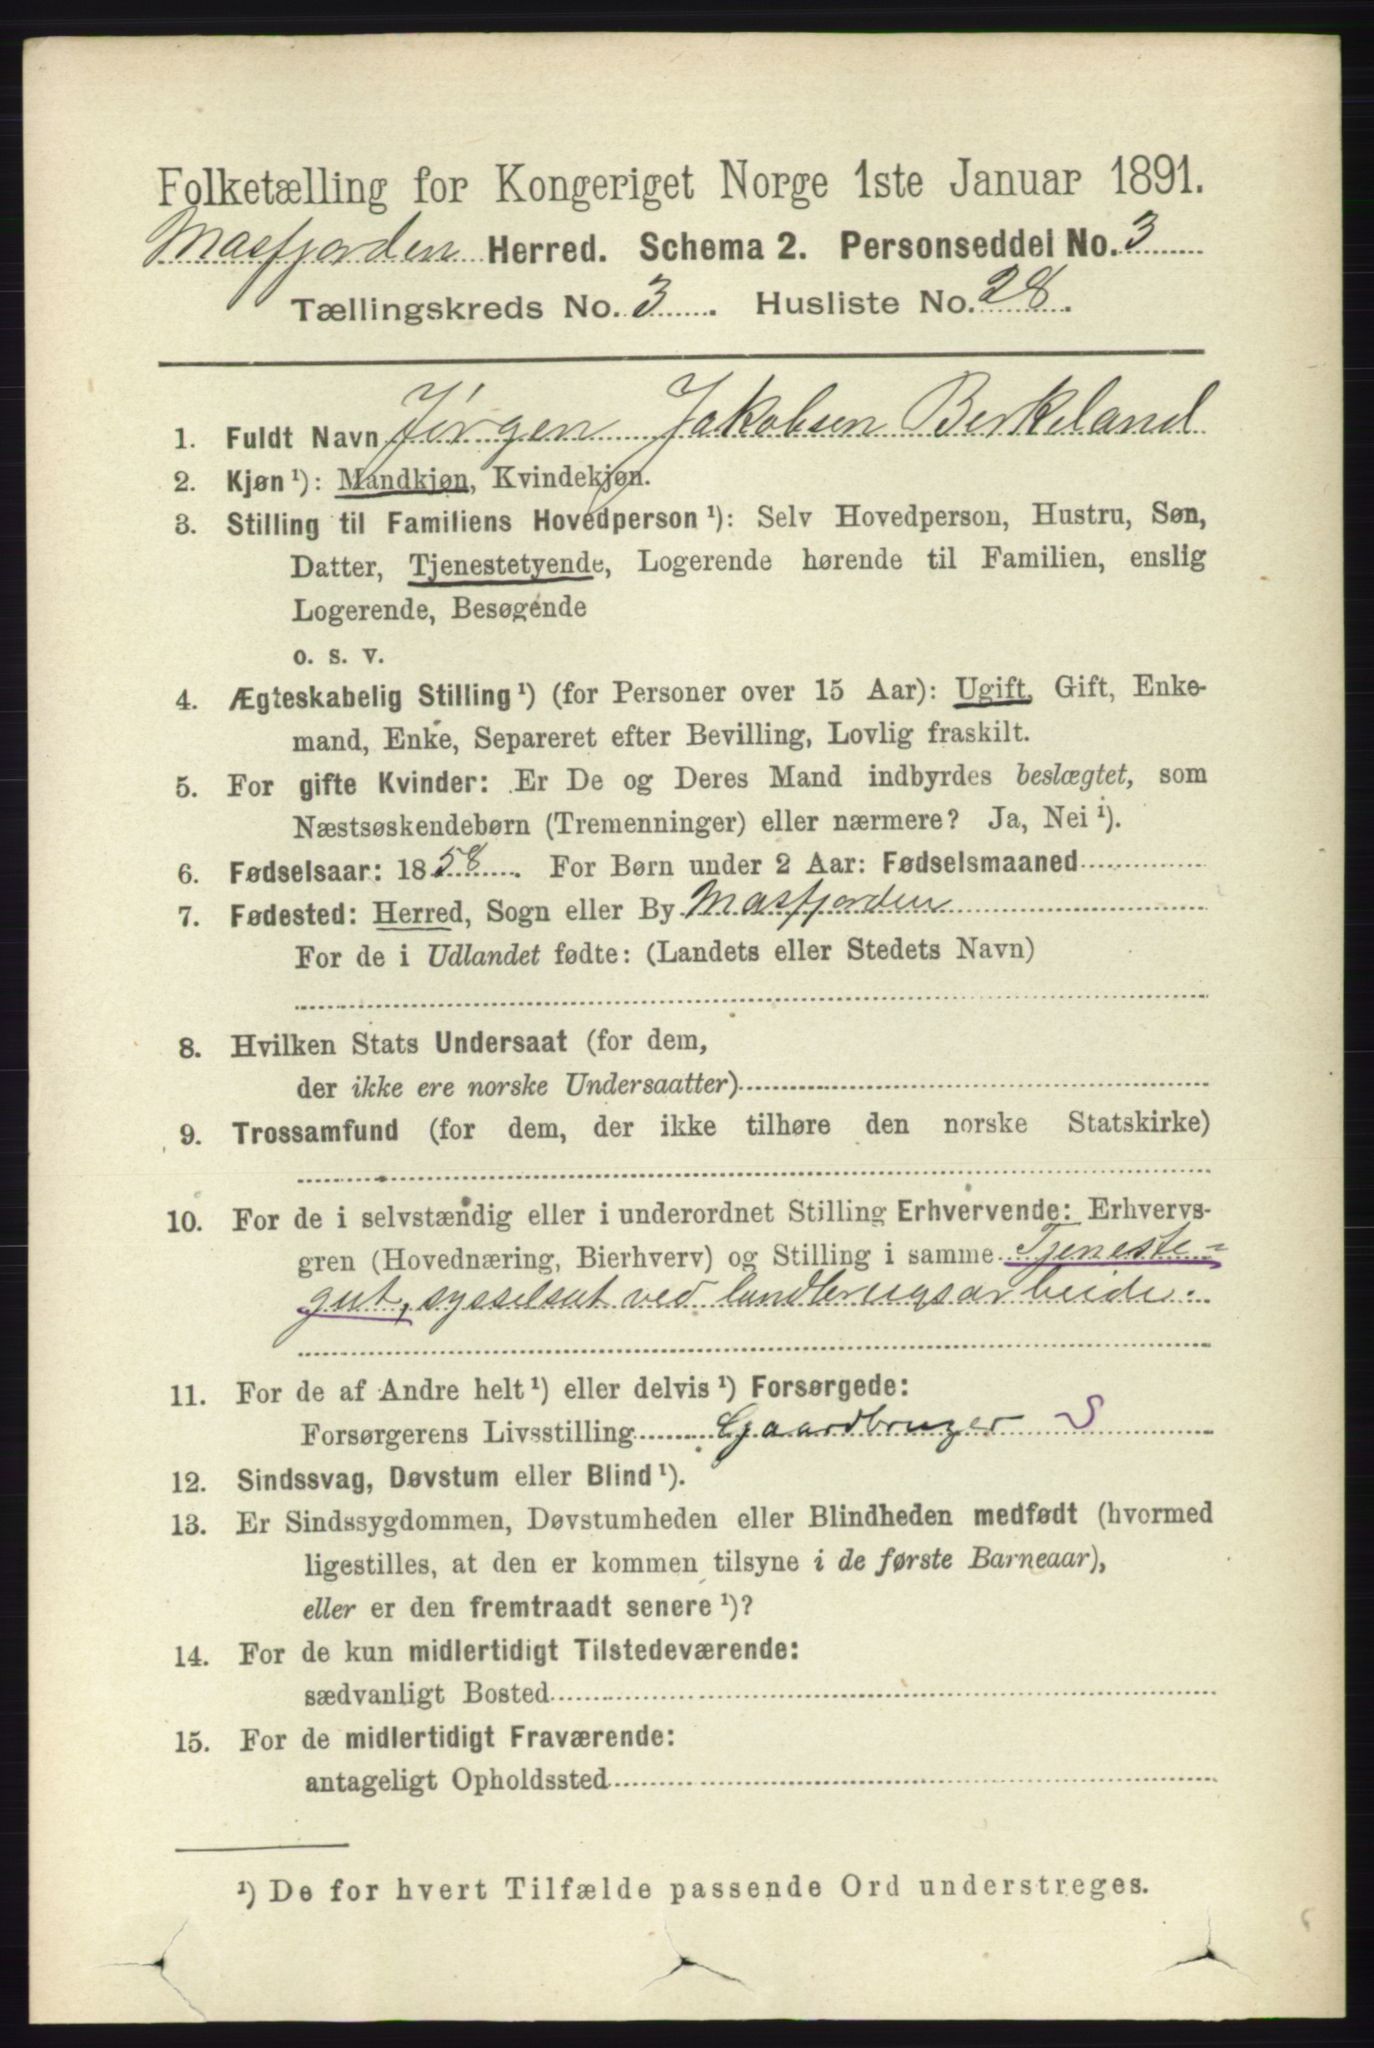 Folketælling for Kongeriget Norge 1ste Januar 1891.
Masfjorden Herred. Schema 2. Personseddel No. 3
Tællingskreds No. 3. Husliste No. 28.
1. Fuldt Navn Jørgen Jakobsen Berkeland
2. Kjøn ¹): Mandkjøn, Kvindekjøn.
3. Stilling til Familiens Hovedperson ¹): Selv Hovedperson, Hustru, Søn,
Datter, Tjenestetyende, Logerende hørende til Familien, enslig
Logerende, Besøgende
o. s. v.
4. Ægteskabelig Stilling ¹) (for Personer over 15 Aar): Ugift, Gift, Enke-
mand, Enke, Separeret efter Bevilling, Lovlig fraskilt.
5. For gifte Kvinder: Er De og Deres Mand indbyrdes beslægtet, som
Næstsøskendebørn (Tremenninger) eller nærmere? Ja, Nei ¹).
6. Fødselsaar: 1858. For Børn under 2 Aar: Fødselsmaaned
7. Fødested: Herred, Sogn eller By Masfjorden
For de i Udlandet fødte: (Landets eller Stedets Navn)
8. Hvilken Stats Undersaat (for dem,
der ikke ere norske Undersaatter)
9. Trossamfund (for dem, der ikke tilhøre den norske Statskirke)
10. For de i selvstændig eller i underordnet Stilling Erhvervende: Erhvervs-
gren (Hovednæring, Bierhverv) og Stilling i samme Tjeneste-
gut, sysselsat ved landbrugsarbeide.
11. For de af Andre helt ¹) eller delvis ¹) Forsørgede:
Forsørgerens Livsstilling Gaardbruger S
12. Sindssvag, Døvstum eller Blind ¹).
13. Er Sindssygdommen, Døvstumheden eller Blindheden medfødt (hvormed
ligestilles, at den er kommen tilsyne i de første Barneaar),
eller er den fremtraadt senere ¹)?
14. For de kun midlertidigt Tilstedeværende:
sædvanligt Bosted
15. For de midlertidigt Fraværende:
antageligt Opholdssted
¹) De for hvert Tilfælde passende Ord understreges.